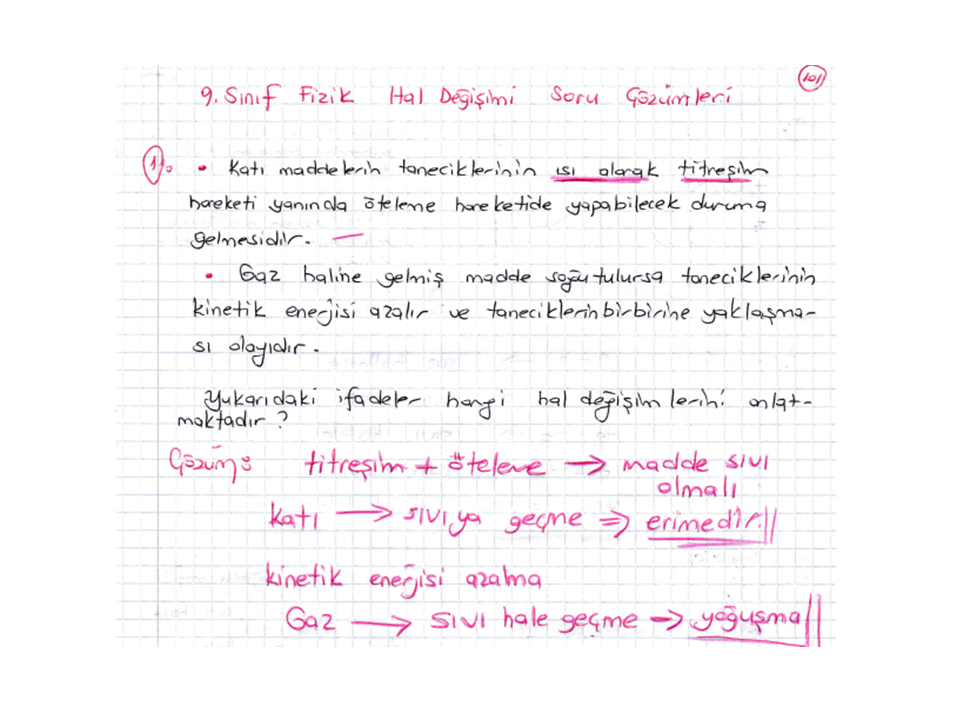 101
9. Sınıf Fizik Hal Değişimi Soru Çözümleri
1. • Katı maddelerin taneciklerinin ısı alarak titreşim
hareketi yanında öteleme hareketide yapabilecek duruma
gelmesidir.
• Gaz haline gelmiş madde soğutulursa taneciklerinin
kinetik enerjisi azalır ve taneciklerin birbirine yaklaşma-
sı olayıdır.
Yukarıdaki ifadeler hangi hal değişimlerini anlat-
maktadır?
Çözüm: titreşim + öteleme → madde sıvı
olmalı
Katı → sıvıya geçme ⇒ erimedir.
kinetik enerjisi azalma
Gaz → sıvı hale geçme ⇒ yoğuşma